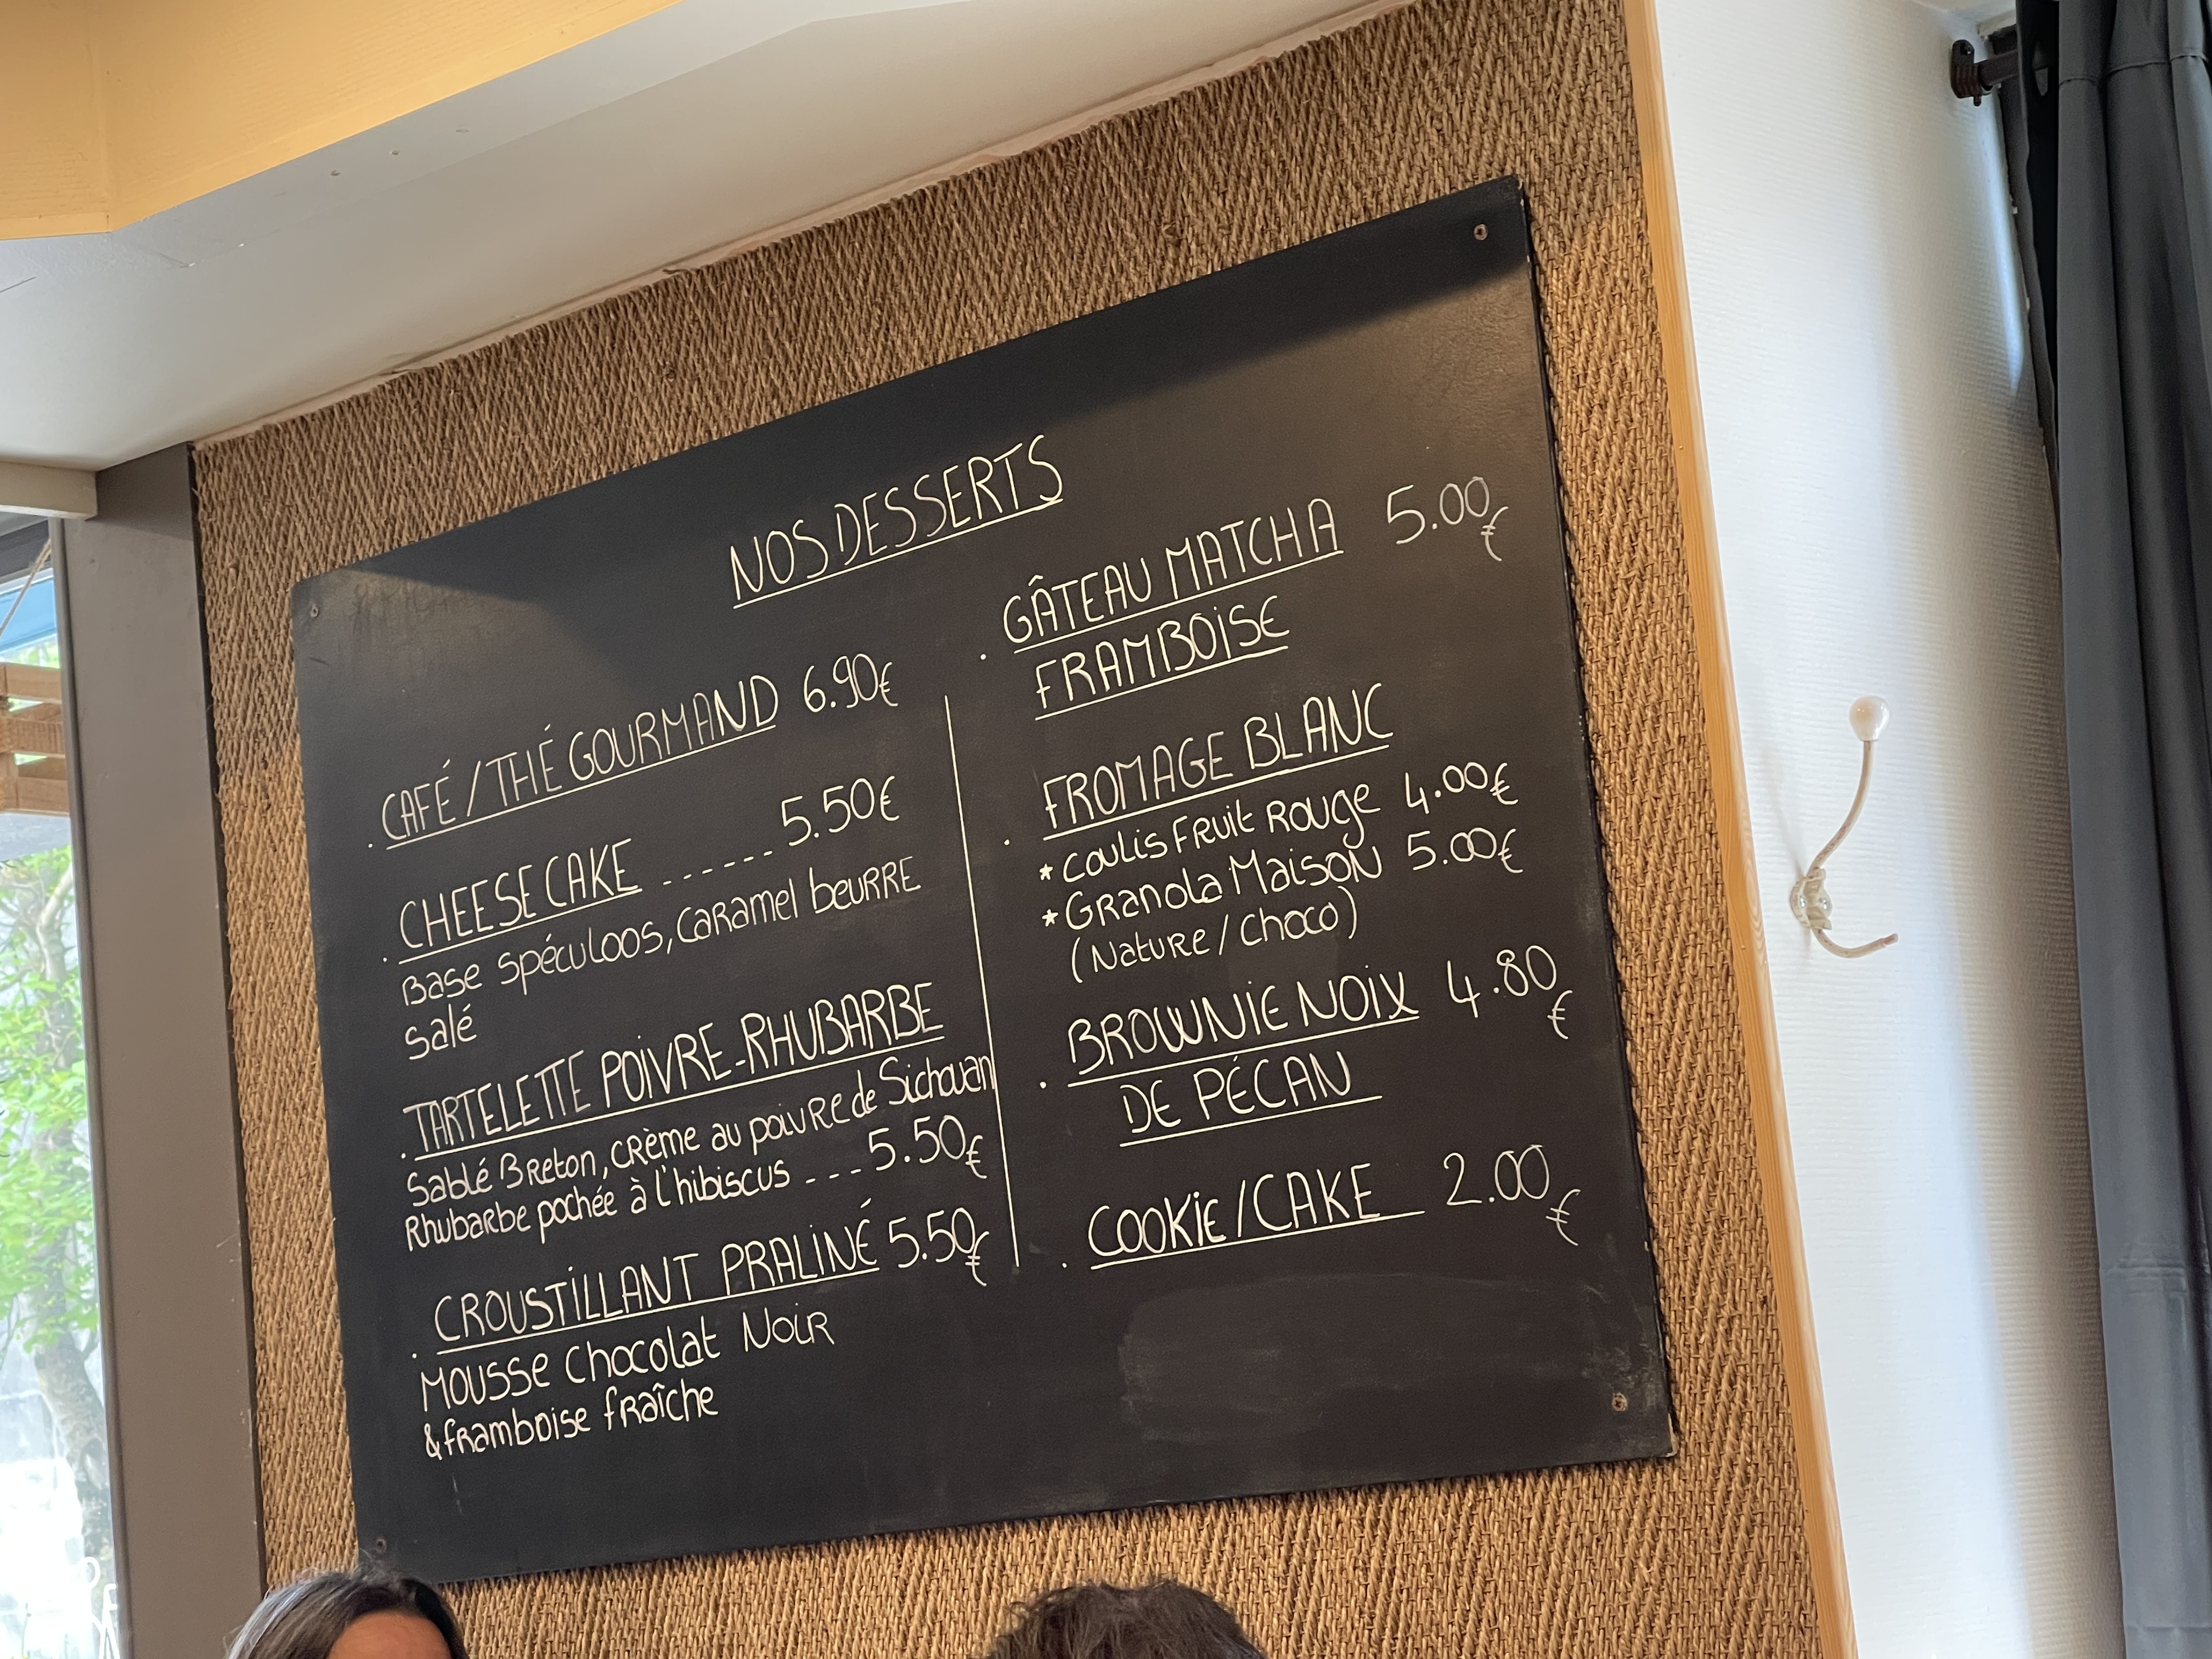 NOS DESSERTS
. CAFÉ / THÉ GOURMAND 6.90€
. CHEESE CAKE ------ 5.50€
Base spéculoos, caramel beurre
salé
. TARTELETTE POIVRE-RHUBARBE
Sablé Breton, crème au poivre de Sichouan
Rhubarbe pochée à l'hibiscus --- 5.50€
. CROUSTILLANT PRALINÉ 5.50€
Mousse chocolat Noir
& framboise fraîche
. GÂTEAU MATCHA 5.00€
FRAMBOISE
. FROMAGE BLANC
* Coulis Fruit Rouge 4.00€
* Granola Maison 5.00€
(Nature / Choco)
. BROWNIE NOIX 4.80€
DE PÉCAN
. COOKIE / CAKE 2.00€